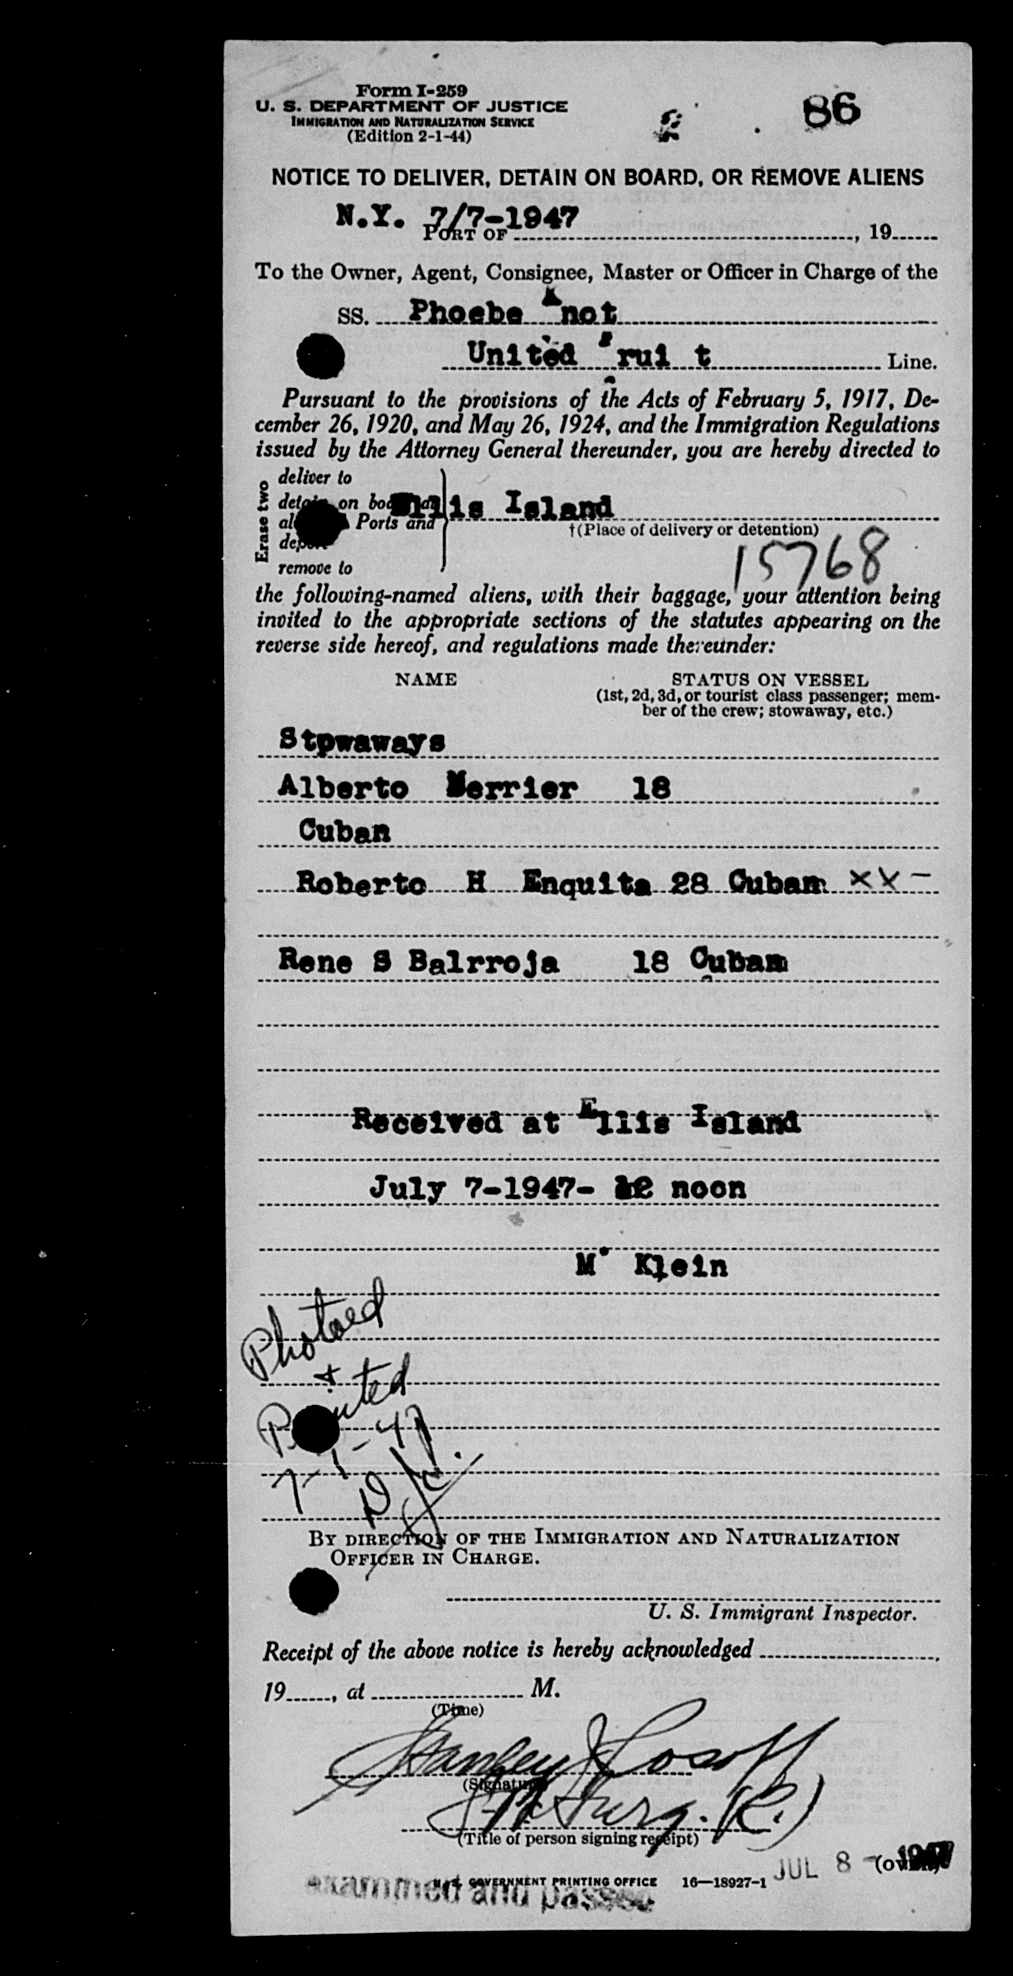 Form I-259
U. S. DEPARTMENT OF JUSTICE
IMMIGRATION AND NATURALIZATION SERVICE
(Edition 2-1-44)
86
NOTICE TO DELIVER, DETAIN ON BOARD, OR REMOVE ALIENS
N.Y. 7/7-1947
PORT OF , 19
To the Owner, Agent, Consignee, Master or Officer in Charge of the
SS. Phoebe Knot
United Frui t Line.
Pursuant to the provisions of the Acts of February 5, 1917, De-
cember 26, 1920, and May 26, 1924, and the Immigration Regulations
issued by the Attorney General thereunder, you are hereby directed to
Erase two
deliver to
detain on board at
Ellis Island
Ports and
†(Place of delivery or detention)
deport
remove to
15768
the following-named aliens, with their baggage, your attention being
invited to the appropriate sections of the statutes appearing on the
reverse side hereof, and regulations made thereunder:
NAME STATUS ON VESSEL
(1st, 2d, 3d, or tourist class passenger; mem-
ber of the crew; stowaway, etc.)
Stpwaways
Alberto Merrier 18
Cuban
Roberto H Enquita 28 Cuban XX -
Rene S Balrroja 18 Cuban
Received at Ellis Island
July 7-1947- 12 noon
M. Klein
Photoed
+
Printed
7-7-47
BY DIRECTION OF THE IMMIGRATION AND NATURALIZATION
OFFICER IN CHARGE.
U. S. Immigrant Inspector.
Receipt of the above notice is hereby acknowledged ,
19 , at M.
(Time)
Stanley J Sosoff
(Signature)
(Title of person signing receipt)
JUL 8 - 1947
(over)
U. S. GOVERNMENT PRINTING OFFICE 16—18927-1
examined and passed